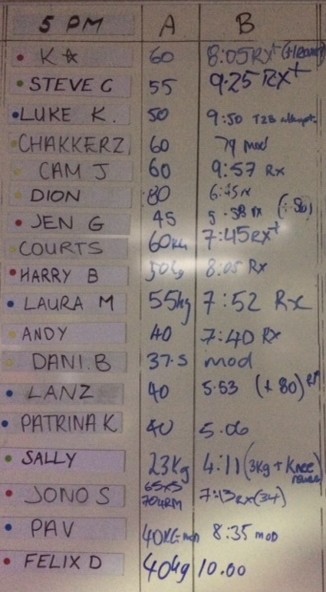 5 PM A B
K☆ 60 8:05 Rx+
STEVE G 55 9:25 Rx+
LUKE K. 50 9:50
CHAKKERZ 60 mod
CAM J 60 9:57 Rx
DION 80 6:45
JEN G 45
COURTS 60KG 7:45 Rx+
HARRY B 50kg 8:05 Rx
LAURA M 55kg 7:52 Rx
ANDY 40 7:40 Rx
DANI.B 37.5 mod
LANZ 40 5.53 (+80) Rx
PATRINA K 40 5.06
SALLY 23Kg 4:11 (3Kg + Knee
JONO S 65KG 7:13 Rx (34)
70KG RM
PAV 40KG 8:35 MOD
FELIX D 40kg 10.00